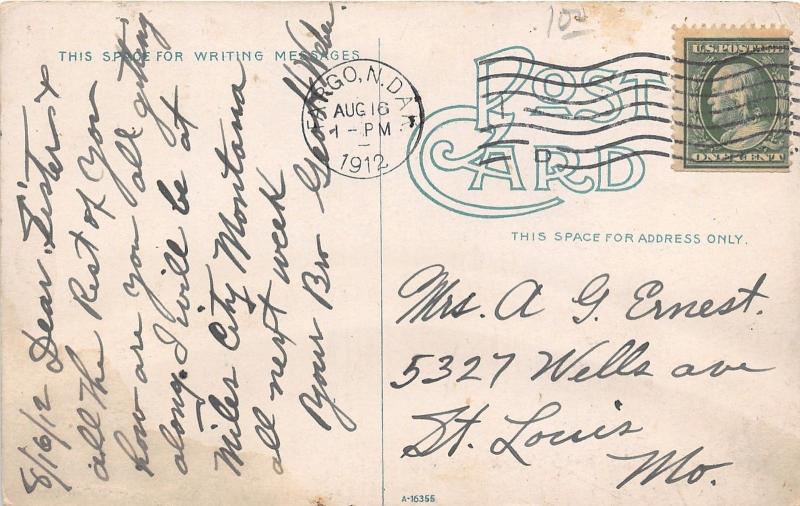 THIS SPACE FOR WRITING MESSAGES
8/16/12 Dear Sister &
all the Rest of you
how are you all getting
along. I will be at
Miles City Montana
all next week
Your Bro Geo
FARGO, N. DAK.
AUG 16
1 - PM
1912
POST
CARD
D
10
U.S. POSTAGE
ONE CENT
THIS SPACE FOR ADDRESS ONLY.
Mrs. A G. Ernest.
5327 Wells ave
St. Louis
Mo.
A-16355